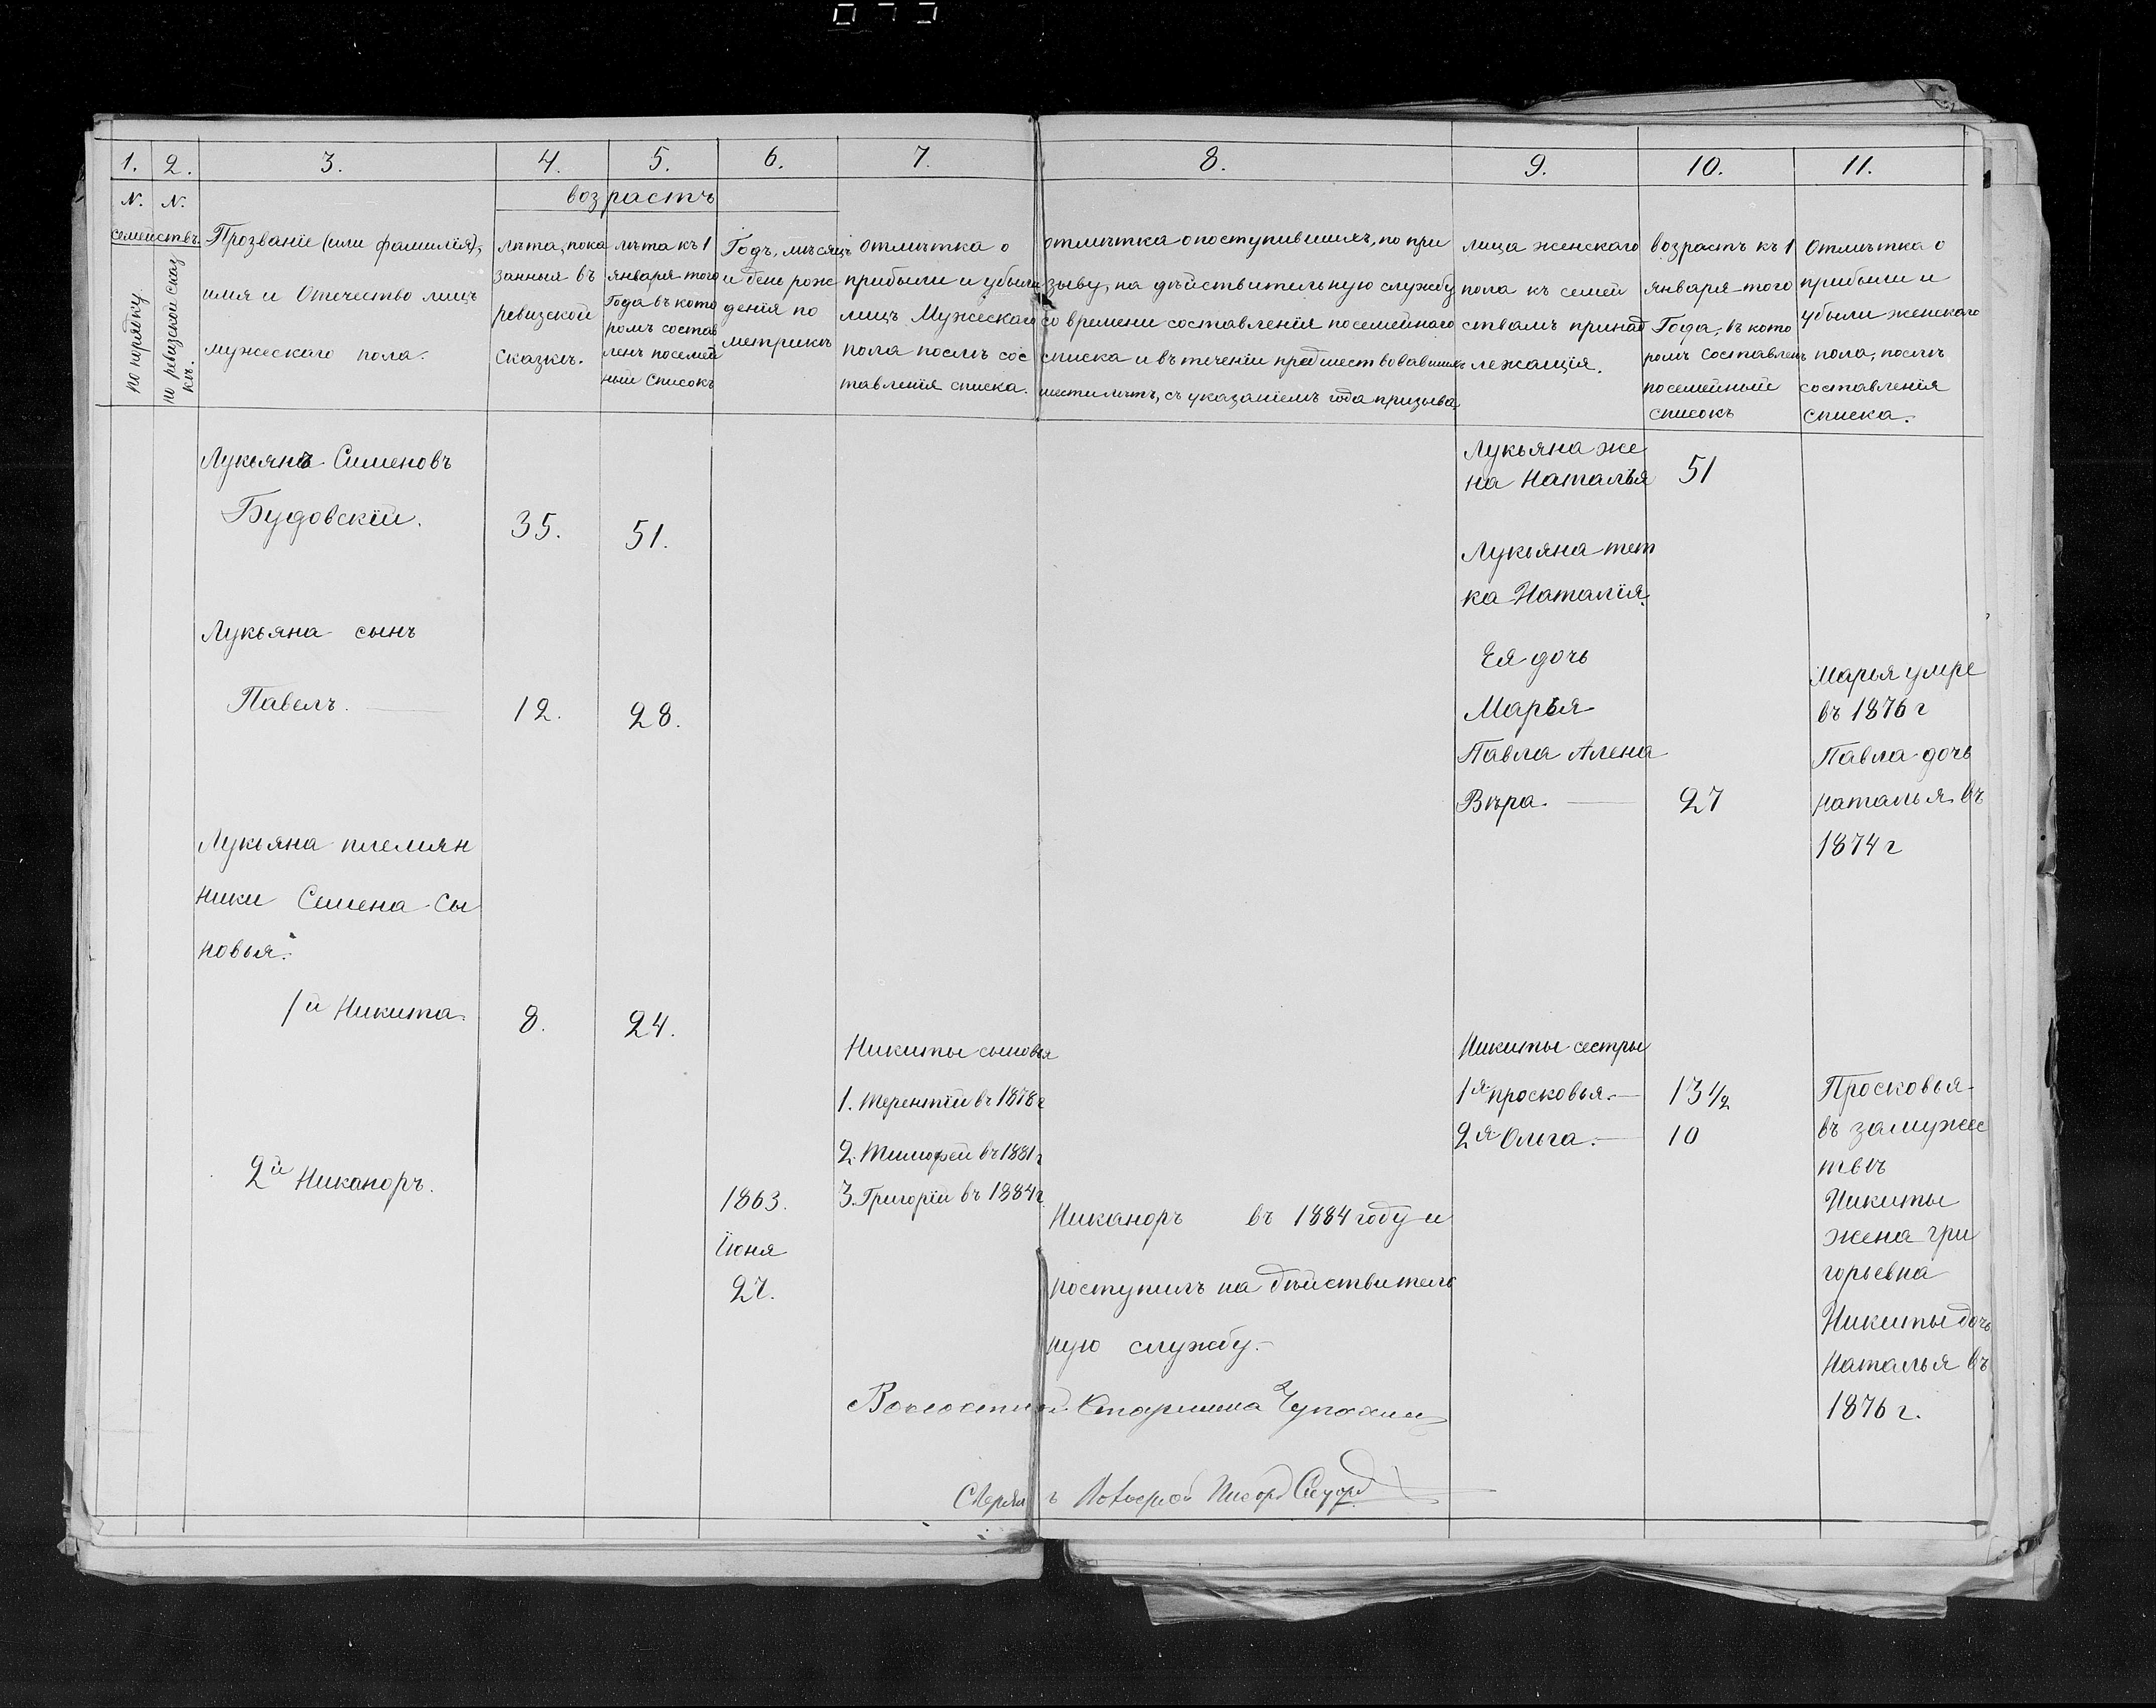 1. 2. 3. 4. 5. 6. 7. 8. 9. 10. 11.
N. N.
семействъ.
по порядку
по ревизской сказ
кѣ.
Прозваніе (или фамилія),
имя и Отчество лицъ
мужескаго пола.
возрастъ
лѣта, пока
занныя въ
ревизской
сказкѣ.
лѣта къ 1
января того
Года въ кото
ромъ состав
ленъ посемей
ный списокъ
Годъ, мѣсяцъ
и день рож
денія по
метрикѣ
Отмѣтка о
прибыли и убыли
лицъ Мужескаго
пола послѣ сос
тавленія списка.
отмѣтка о поступившихъ, по при
зыву, на дѣйствительную службу
со времени составленія посемейнаго
списка и въ теченіи предшествовавшихъ
шести лѣтъ, съ указаніемъ года призыва
лица женскаго
пола къ семей
ствамъ принад
лежащія.
возрастъ къ 1
января того
Года, въ кото
ромъ составленъ
посемейный
списокъ
Отмѣтка о
прибыли и
убыли женскаго
пола, послѣ
составленія
списка.
Лукьянъ Сименовъ
Будовскій. 35. 51.
Лукьяна же
на Наталья 51
Лукьяна тет
ка Наталія.
Лукьяна сынъ
Павелъ. 12. 28.
Ея дочь
Марья
Павла Алена
Вѣра. 27
Марья умре
въ 1876 г
Павла дочь
Наталья въ
1874 г
Лукьяна племян
ники Семена Сы
новья:
1й Никита 8. 24.
Никиты сыновья
1. Терентій въ 1878 г
2. Тимофей въ 1881 г
3. Григорій въ 1884 г
Никиты сестры
1я просковья. 13 1/2
2я Ольга. 10
Просковья
въ замужес
твѣ
Никиты
жена Гри
горьевна
Никиты дочь
Наталья въ
1876 г.
2й Никаноръ.
1863.
Іюня
27.
Никаноръ въ 1884 году и
поступилъ на дѣйствитель
ную службу.
Волостной Старшина
Писарь